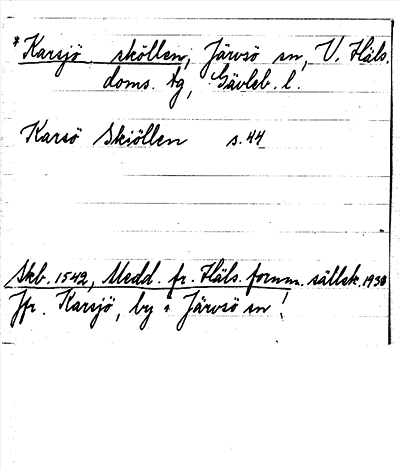 *Karsjö sköllen, Järvsö sn, V. Häls.
doms. tg, Gävleb. l.
Karsö Skiöllen s. 44
Skb. 1542, Medd. fr. Häls. fornm. sällsk. 1938
Jfr. Karsjö, by i Järvsö sn!